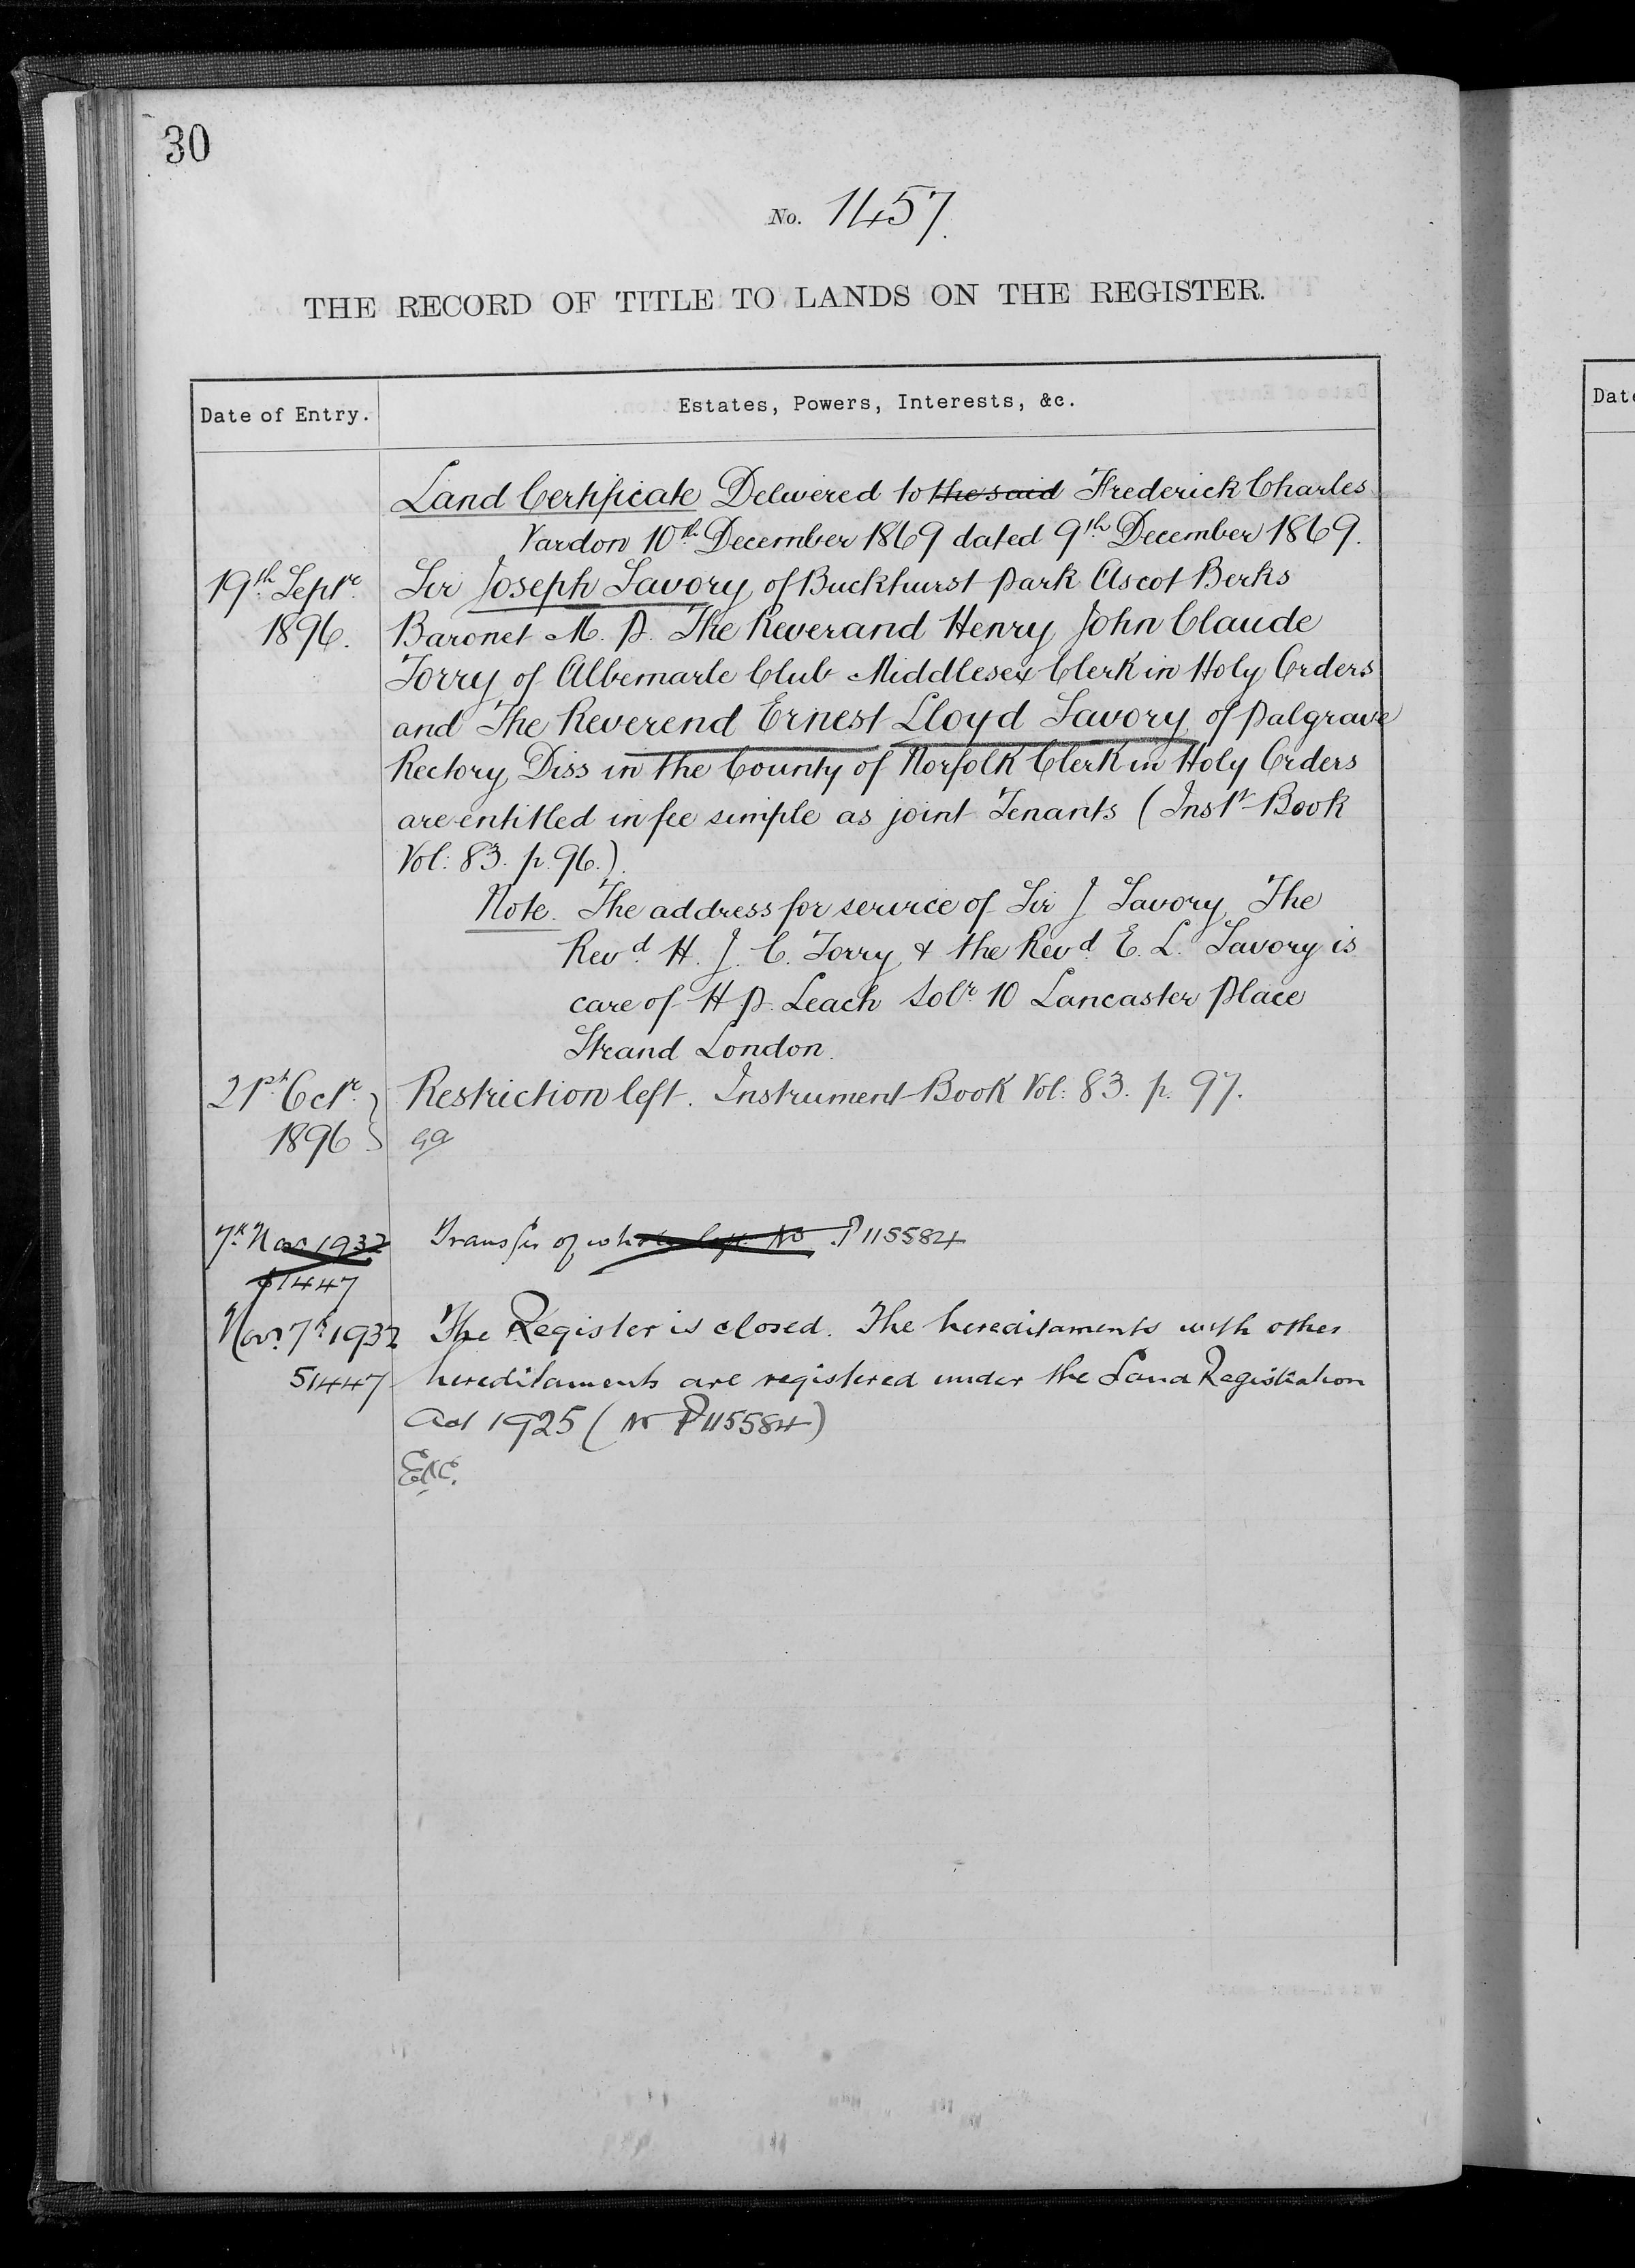 30
No. 1457.
THE RECORD OF TITLE TO LANDS ON THE REGISTER.
Date of Entry.
Estates, Powers, Interests, &c.
Land Certificate Delivered to the said Frederick Charles
Vardon 10th December 1869 dated 9th December 1869.
19th Septr.
1896.
Sir Joseph Savory of Buckhurst Park Ascot Berks
Baronet M. P. The Reverand Henry John Claude
Torry of Albemarle Club Middlesex Clerk in Holy Orders
and The Reverend Ernest Lloyd Savory of Palgrave
Rectory Diss in the County of Norfolk Clerk in Holy Orders
are entitled in fee simple as joint Tenants (Instt Book
Vol: 83. p. 96.).
Note. The address for service of Sir J Savory The
Revd. H. J. C. Torry & the Revd. E. L. Savory is
care of H P. Leach Solr. 10 Lancaster Place
Strand London.
21st Octr.
1896
Restriction left. Instrument Book Vol: 83. p. 97.
7th Nov 1932
51447
Transfer of whole left. No P115584
Novr. 7th 1932
51447
The Register is closed. The hereditaments with other
hereditaments are registered under the Land Registration
Act 1925 (No P115584)
Date